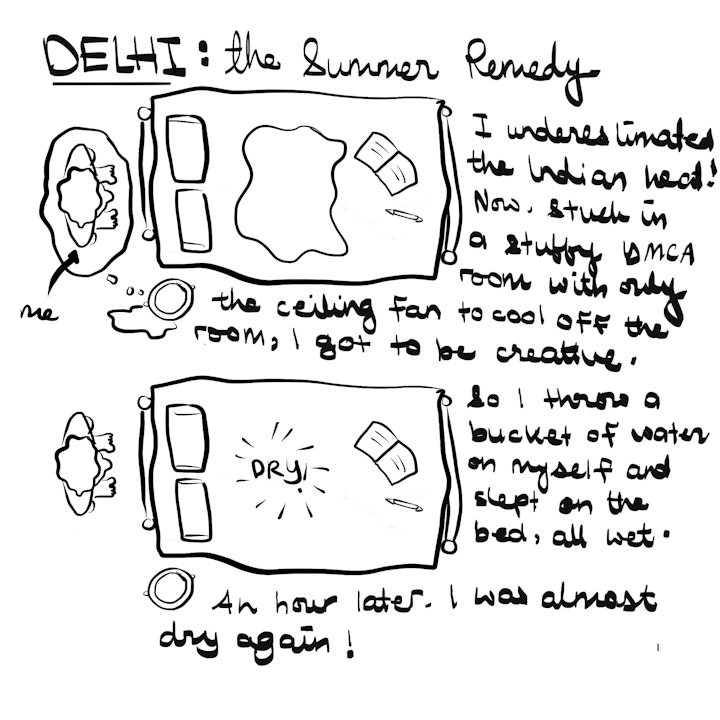 DELHI: the Summer Remedy
I underestimated
the Indian heat!
Now, stuck in
a stuffy YMCA
room with only
the ceiling fan to cool off the
room, I got to be creative.
me
So I throw a
bucket of water
on myself and
slept on the
bed, all wet.
DRY!
An hour later. I was almost
dry again!